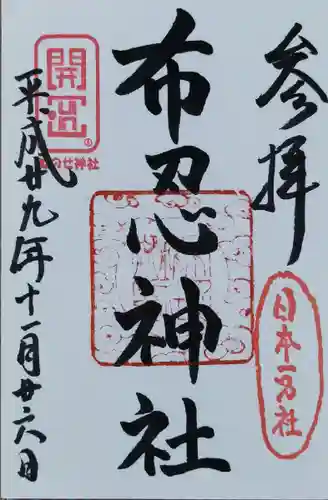 参拝
日本一社
布忍神社
開運
布のせ神社
平成廿九年十一月廿六日